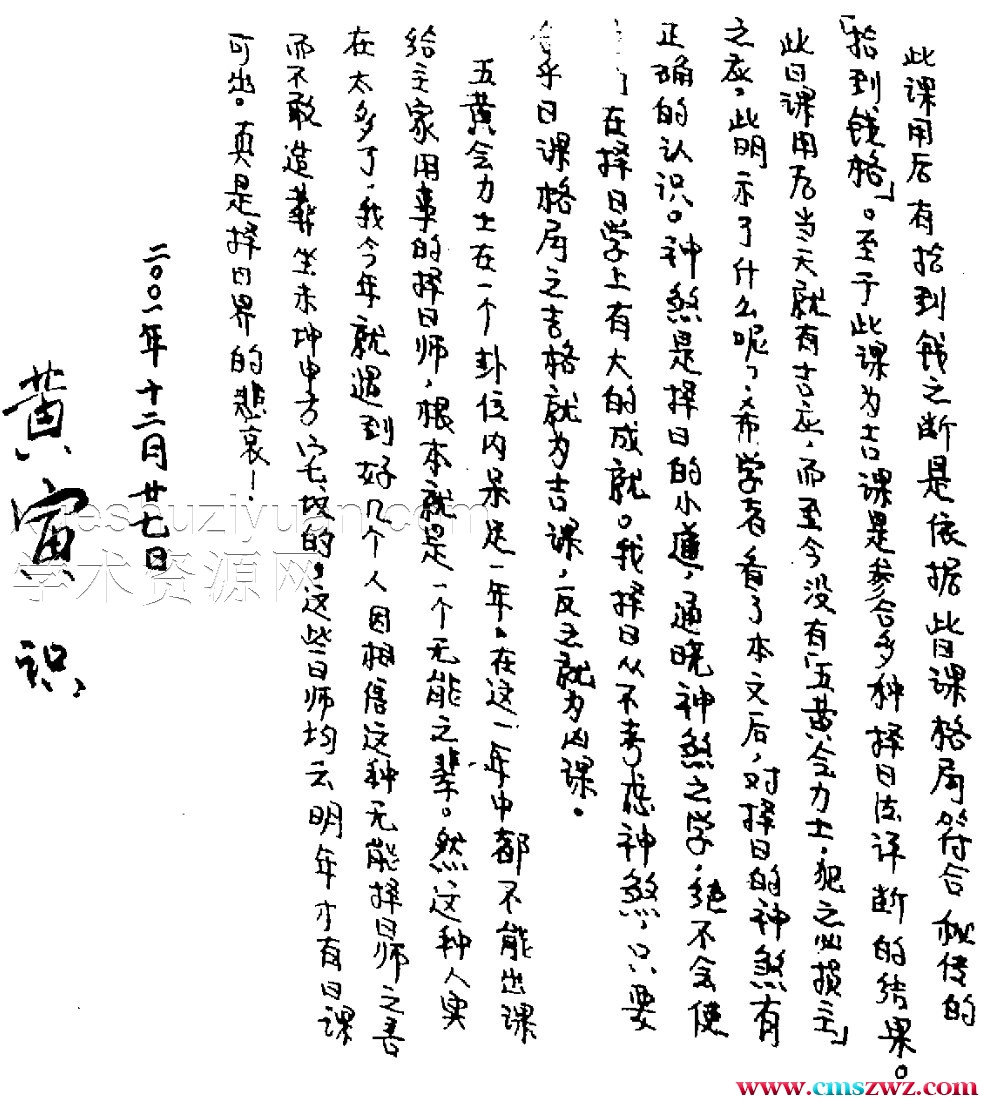 此课用后有拾到钱之断是依据此日课格局符合秘传的
「拾到钱格」。至于此课为吉课是参合多种择日法评断的结果。
此日课用后当天就有吉应,而至今没有「五黄会力士,犯之必损主」
之应。此明示了什么呢?希学者看了本文后,对择日的神煞有
正确的认识。神煞是择日的小道,通晓神煞之学,绝不会使
在择日学上有大的成就。我择日从不考虑神煞,只要
合乎日课格局之吉格就为吉课,反之就为凶课。
五黄会力士在一个卦位内呆足一年。在这一年中都不能出课
给主家用事的择日师,根本就是一个无能之辈。然这种人实
在太多了,我今年就遇到好几个人因相信这种无能择日师之言
而不敢造葬坐未坤申方宅坟的。这些日师均云明年才有日课
可出。真是择日界的悲哀!
二〇〇一年十二月廿七日
黄寅识
eshuziyuan.com
学术资源网
www.cmszwz.com